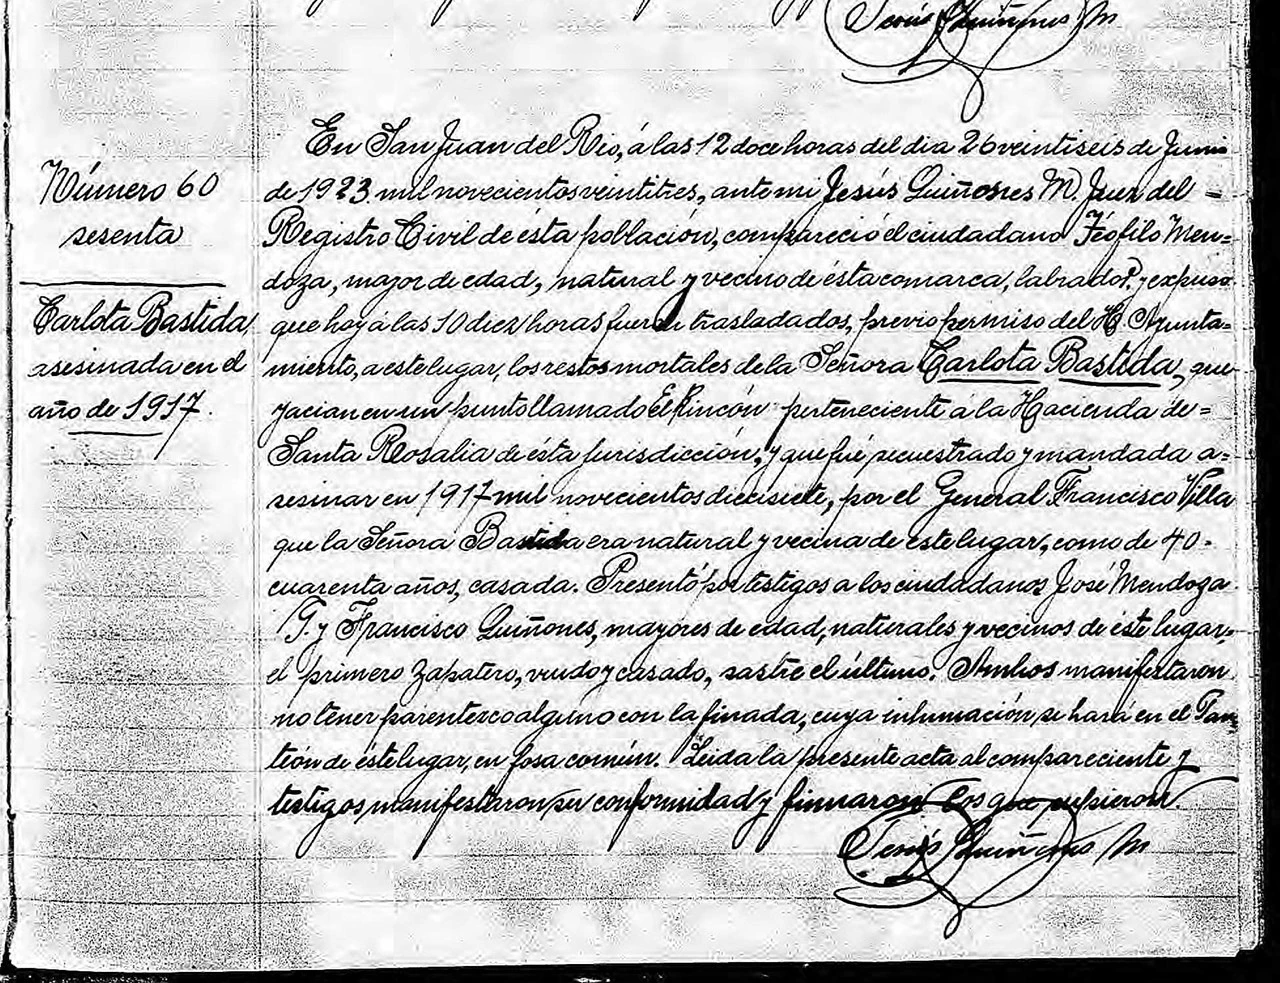 Jesús Quiñones M
En San Juan del Rio, á las 12 doce horas del dia 26 veintiseis de Junio
Número 60
sesenta
de 1923 mil novecientos veintitres, ante mi Jesús Quiñones M. Juez del =
Registro Civil de ésta población, compareció el ciudadano Teófilo Men=
doza, mayor de edad, natural y vecino de ésta comarca, labrador, y expuso
Carlota Bastida
asesinada en el
año de 1917.
que hoy á las 10 diez horas fueron trasladados, previo permiso del H. Ayunta=
miento, a este lugar, los restos mortales de la Señora Carlota Bastida, que
yacian en un punto llamado El Rincón perteneciente á la Hacienda de=
Santa Rosalia de ésta Jurisdicción, y que fué secuestrado y mandada a=
sesinar en 1917 mil novecientos diecisiete, por el General Francisco Villa
que la Señora Bastida era natural y vecina de este lugar, como de 40=
cuarenta años, casada. Presentó por testigos a los ciudadanos José Mendoza
G. y Francisco Quiñones, mayores de edad, naturales y vecinos de éste lugar,
el primero zapatero, viudo y casado, sastre el último. Ambos manifestaron
no tener parentezco alguno con la finada, cuya inhumación se hará en el Pan=
teón de éste lugar, en fosa común. Leida la presente acta al compareciente y
testigos, manifestaron su conformidad y firmaron los que supieron.
Jesús Quiñones M